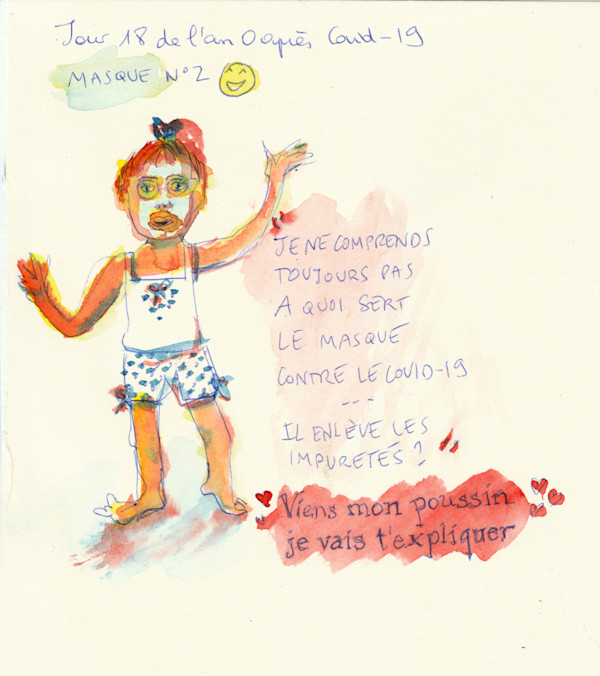 Jour 18 de l'an 0 après Covid-19
MASQUE N°2
"JE NE COMPRENDS
TOUJOURS PAS
A QUOI SERT
LE MASQUE
CONTRE LE COVID-19
---
IL ENLÈVE LES
IMPURETÉS ?"
"Viens mon poussin
je vais t'expliquer"